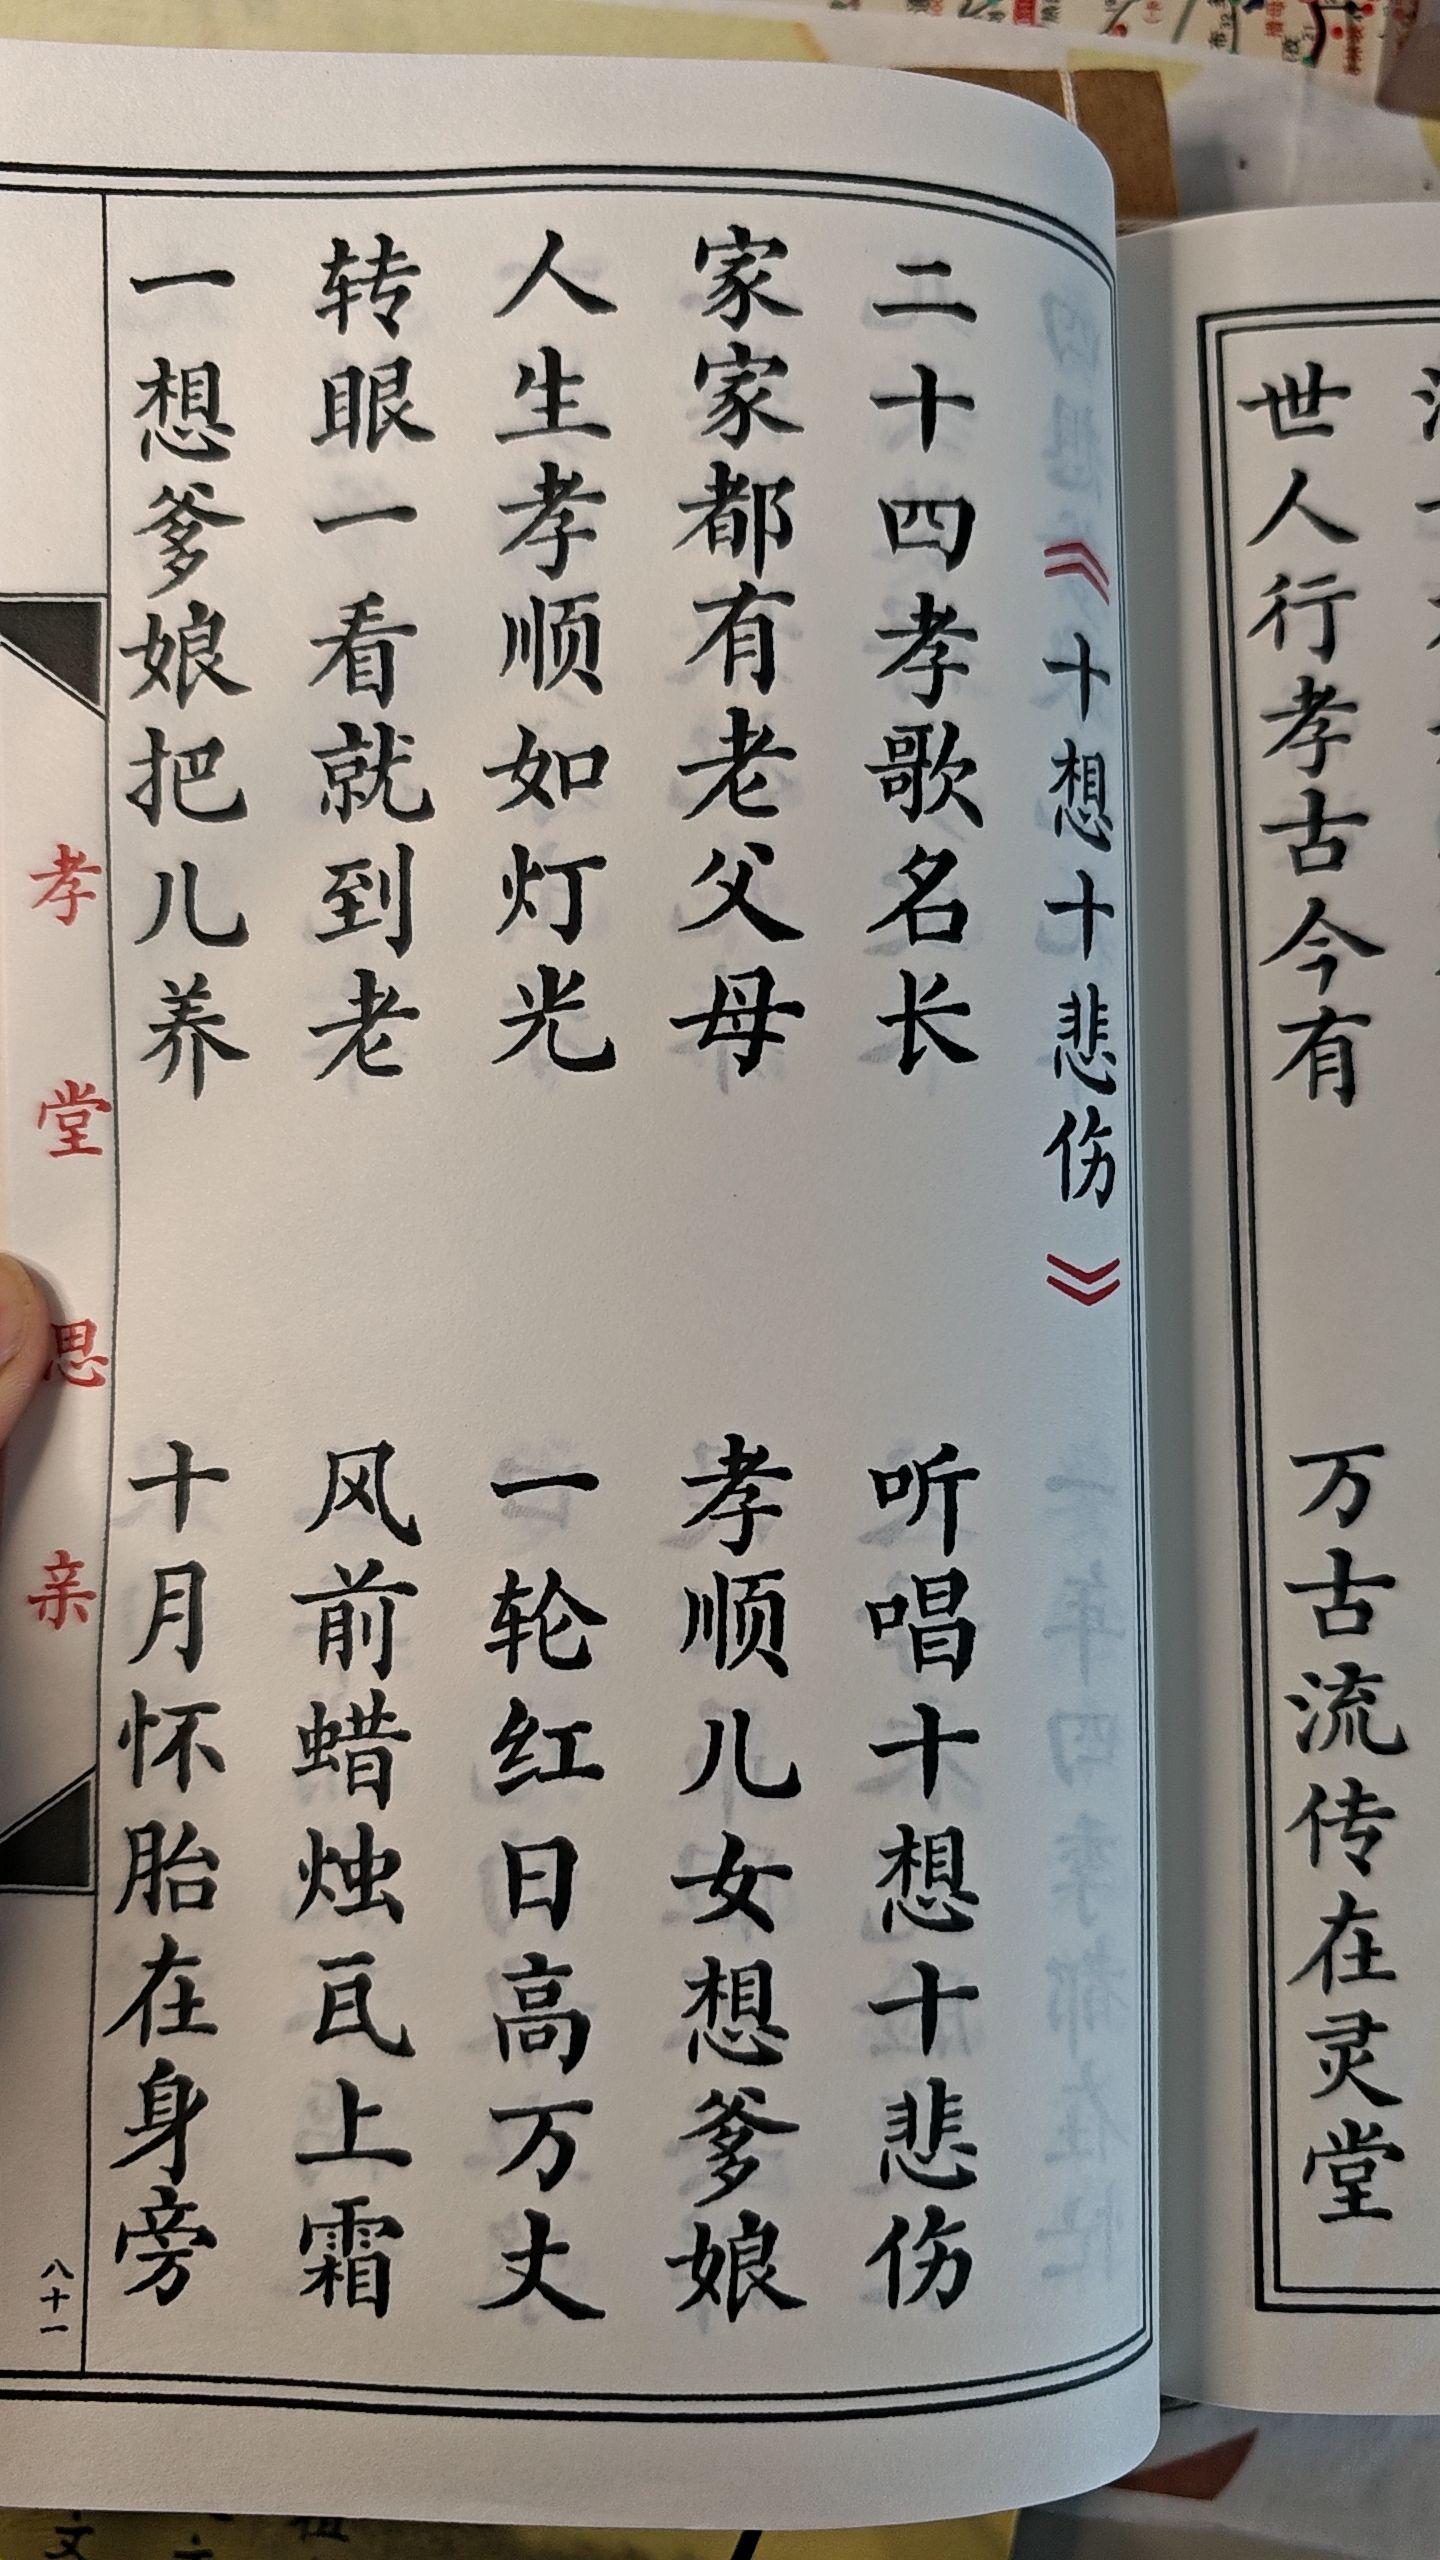 世人行孝古今有 万古流传在灵堂
《十想十悲伤》
二十四孝歌名长 听唱十想十悲伤
家家都有老父母 孝顺儿女想爹娘
人生孝顺如灯光 一轮红日高万丈
转眼一看就到老 风前蜡烛瓦上霜
一想爹娘把儿养 十月怀胎在身旁
孝堂思亲
八十一